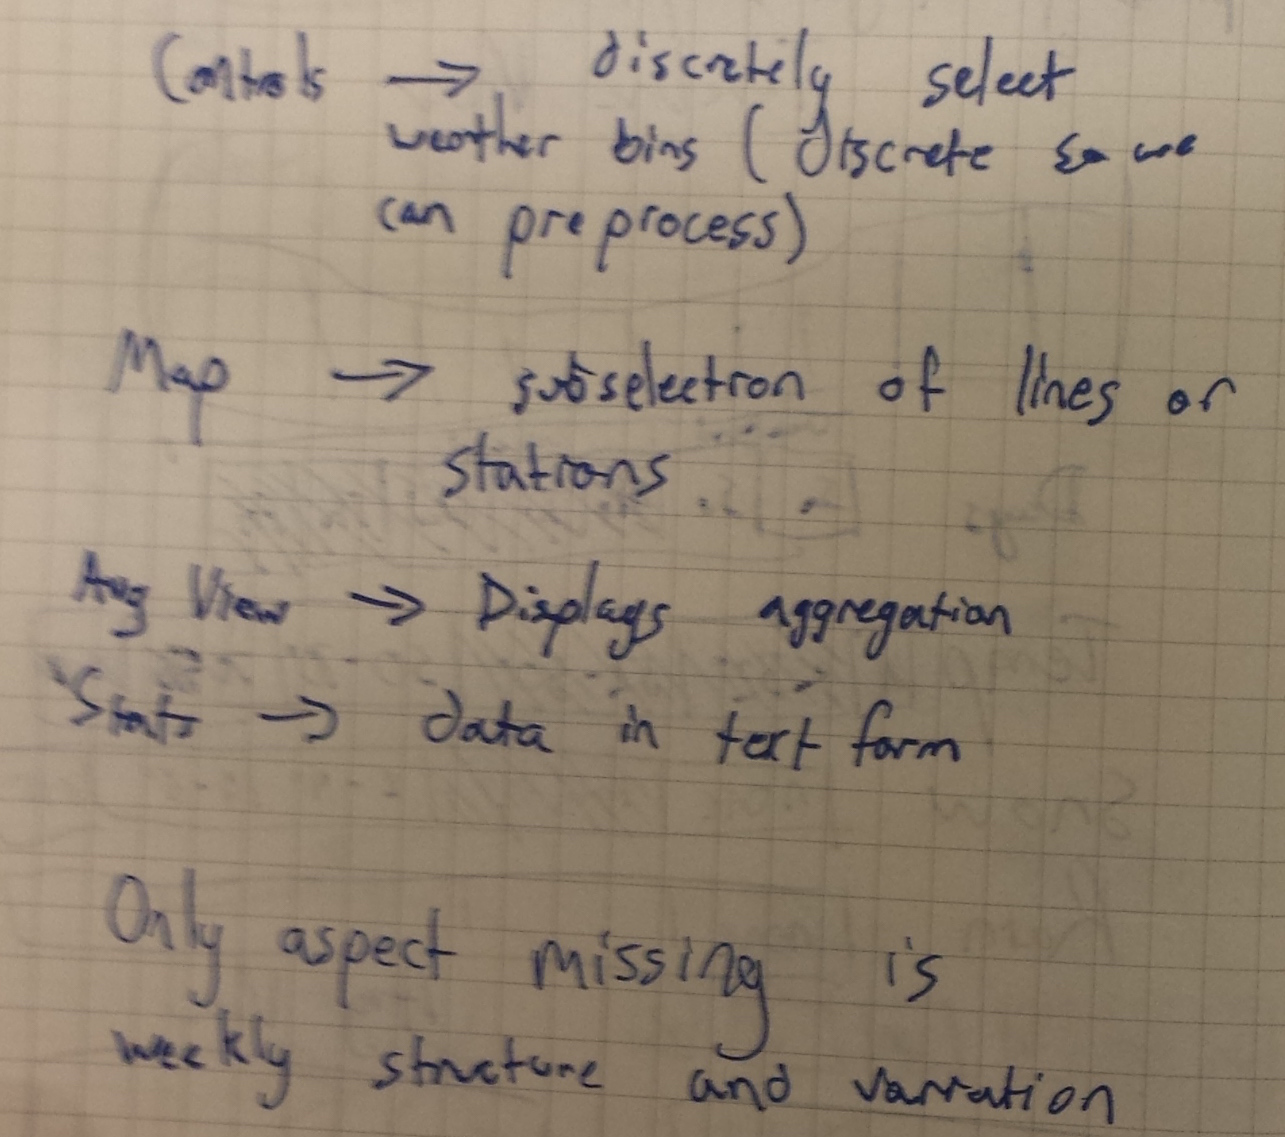 Controls → discretely select
weather bins (discrete so we
can preprocess)
Map → subselection of lines or
stations
Avg View → Displays aggregation
Stats → data in text form
Only aspect missing is
weekly structure and variation